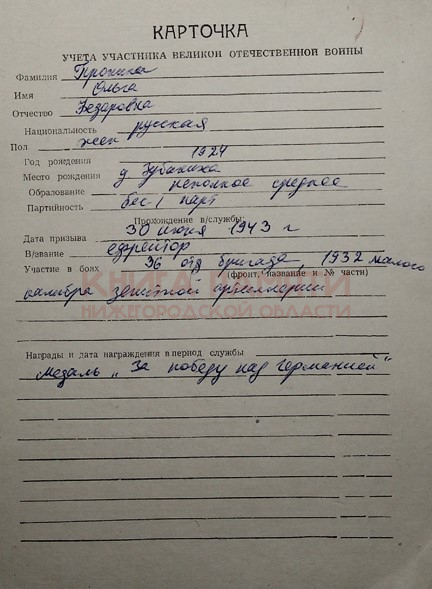 КАРТОЧКА
УЧЕТА УЧАСТНИКА ВЕЛИКОЙ ОТЕЧЕСТВЕННОЙ ВОЙНЫ
Фамилия Пронина
Имя Ольга
Отчество Назаровна
Национальность русская
Пол жен
Год рождения 1924
Место рождения д Зубаниха
Образование неполное среднее
Партийность бес-/парт
Прохождение в/службы:
Дата призыва 30 июня 1943 г
В/звание ефрейтор
Участие в боях 36 отд бригада, 1932 малого
(фронт, название и № части)
калибра зенитной артиллерии
КНИГА ПАМЯТИ
НИЖЕГОРОДСКОЙ ОБЛАСТИ
Награды и дата награждения в период службы
медаль „За победу над Германией"